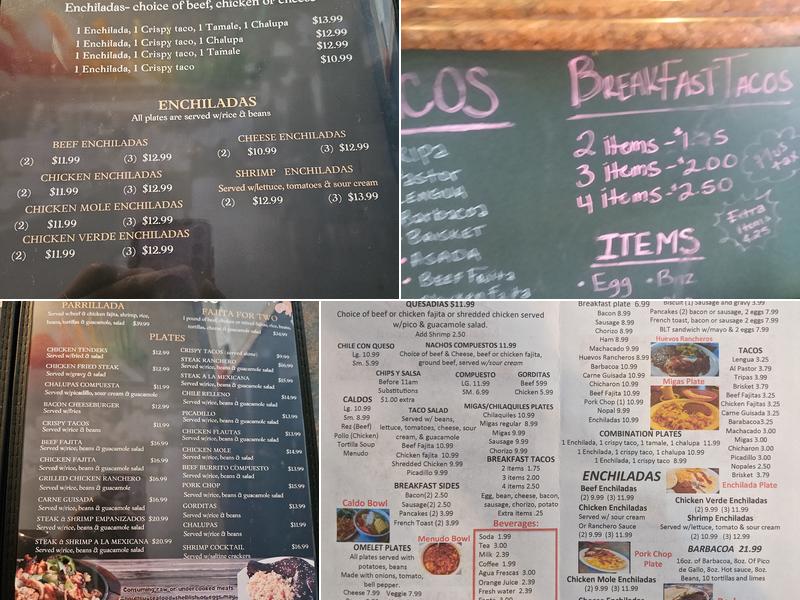 Enchiladas- choice of beef, chicken or cheese
1 Enchilada, 1 Crispy taco, 1 Tamale, 1 Chalupa $13.99
1 Enchilada, 1 Crispy taco, 1 Chalupa $12.99
1 Enchilada, 1 Crispy taco, 1 Tamale $12.99
1 Enchilada, 1 Crispy taco $10.99
ENCHILADAS
All plates are served w/rice & beans
BEEF ENCHILADAS
(2) $11.99 (3) $12.99
CHICKEN ENCHILADAS
(2) $11.99 (3) $12.99
CHICKEN MOLE ENCHILADAS
(2) $11.99 (3) $12.99
CHICKEN VERDE ENCHILADAS
(2) $11.99 (3) $12.99
CHEESE ENCHILADAS
(2) $10.99 (3) $12.99
SHRIMP ENCHILADAS
Served w/lettuce, tomatoes & sour cream
(2) $12.99 (3) $13.99
COS
Barbacoa
BRISKET
ASADA
Beef Fajita
BREAKFAST TACOS
2 items -
3 items - $2.00
4 items - $2.50
Plus tax
Extra
items
.25
ITEMS
• Egg •
PARRILLADA
Served w/beef & chicken fajita, shrimp, rice,
beans, tortillas & guacamole salad $39.99
FAJITA FOR TWO
$34.99
PLATES
CHICKEN TENDERS $12.99
Served w/fried & salad
CHICKEN FRIED STEAK $12.99
Served w/gravy & salad
CHALUPAS COMPUESTA $11.99
Served w/picadillo, sour cream & guacamole
BACON CHEESEBURGER $12.99
Served w/fries
CRISPY TACOS $11.99
Served w/rice & beans
BEEF FAJITA $16.99
Served w/rice, beans & guacamole salad
CHICKEN FAJITA $16.99
Served w/rice, beans & guacamole salad
GRILLED CHICKEN RANCHERO $16.99
Served w/rice, beans & guacamole salad
CARNE GUISADA $16.99
Served w/rice, beans & guacamole salad
STEAK & SHRIMP EMPANIZADOS $20.99
Served w/rice, beans & guacamole salad
STEAK & SHRIMP A LA MEXICANA $20.99
Served w/rice, beans & guacamole salad
CRISPY TACOS $9.99
STEAK RANCHERO $16.99
Served w/rice, beans & guacamole salad
STEAK A LA MEXICANA $15.99
Served w/rice, beans & guacamole salad
CHILE RELLENO $14.99
Served w/rice, beans & salad
PICADILLO $13.99
Served w/rice, beans & guacamole salad
CHICKEN FLAUTAS $13.99
Served w/rice, beans & salad
CHICKEN MOLE $14.99
Served w/rice, beans & salad
BEEF BURRITO COMPUESTO $13.99
Served w/rice, beans & guacamole salad
PORK CHOP $15.99
Served w/rice, beans & guacamole salad
GORDITAS $13.99
Served w/rice & beans
CHALUPAS $11.99
Served w/rice, beans & guacamole salad
SHRIMP COCKTAIL $16.99
Served w/saltine crackers
Consuming raw or undercooked meats,
QUESADIAS $11.99
Choice of beef or chicken fajita or shredded chicken served
w/pico & guacamole salad.
Add Shrimp 2.50
CHILE CON QUESO
Lg. 10.99
Sm. 5.99
NACHOS COMPUESTOS 11.99
Choice of beef & Cheese, beef or chicken fajita,
ground beef, served w/sour cream
CHIPS Y SALSA
Before 11am
Substitutions
$1.00 extra
COMPUESTO
LG. 11.99
SM. 6.99
GORDITAS
Beef 599
Chicken 5.99
CALDOS
Lg. 10.99
Sm. 8.99
Rez (Beef)
Pollo (Chicken)
Tortilla Soup
Menudo
TACO SALAD
Served w/ beans,
lettuce, tomatoes, cheese, sour
cream, & guacamole
Beef Fajita 10.99
Chicken fajita 10.99
Shredded Chicken 9.99
Picadillo 9.99
MIGAS/CHILAQUILES PLATES
Chilaquiles 10.99
Migas regular 8.99
Migas 9.99
Sausage 9.99
Chorizo 9.99
BREAKFAST SIDES
Bacon(2) 2.50
Sausage(2) 2.50
Pancakes (2) 3.99
French Toast (2) 3.99
BREAKFAST TACOS
2 items 1.75
3 items 2.00
4 items 2.50
Egg, bean, cheese, bacon,
sausage, chorizo, potato
Extra Items .25
Caldo Bowl
Menudo Bowl
Beverages:
Soda 1.99
Tea 3.00
Milk 2.39
Coffee 1.99
Agua Frescas 3.00
Orange Juice 2.39
Fresh water 2.39
OMELET PLATES
All plates served with
potatoes, beans
Made with onions, tomato,
bell pepper.
Cheese 7.99 Veggie 7.99
Breakfast plate 6.99
Bacon 8.99
Sausage 8.99
Chorizo 8.99
Ham 8.99
Machacado 9.99
Huevos Rancheros 8.99
Barbacoa 10.99
Carne Guisada 10.99
Chicharon 10.99
Beef Fajita 10.99
Pork Chop (1) 10.99
Nopal 9.99
Enchiladas 10.99
Biscuit (1) Sausage and gravy 3.99
Pancakes (2) bacon or sausage, 2 eggs 7.99
French toast, bacon or sausage, 2 eggs 7.99
BLT sandwich w/mayo & 2 eggs 7.99
Huevos Rancheros
Migas Plate
TACOS
Lengua 3.25
Al Pastor 3.79
Tripas 3.99
Brisket 3.79
Beef Fajitas 3.25
Chicken Fajitas 3.25
Carne Guisada 3.25
Barbacoa3.25
Machacado 3.00
Migas 3.00
Chicharon 3.00
Picadillo 3.00
Nopales 2.50
Brisket 3.79
COMBINATION PLATES
1 Enchilada, 1 crispy taco, 1 tamale, 1 chalupa 11.99
1 Enchilada, 1 crispy taco, 1 chalupa 10.99
1 Enchilada, 1 crispy taco 8.99
Enchilada Plate
ENCHILADAS
Beef Enchiladas
(2) 9.99 (3) 11.99
Chicken Enchiladas
Served w/ sour cream
Or Ranchero Sauce
(2) 9.99 (3) 11.99
Chicken Verde Enchiladas
(2) 9.99 (3) 11.99
Shrimp Enchiladas
Served w/lettuce, tomato & sour cream
(2) 10.99 (3) 12.99
Pork Chop
Plate
Chicken Mole Enchiladas
(2) 9.99 (3) 11.99
BARBACOA 21.99
16oz. of Barbacoa, 8oz. Of Pico
de Gallo, 8oz. Hot sauce, 8oz.
Beans, 10 tortillas and limes